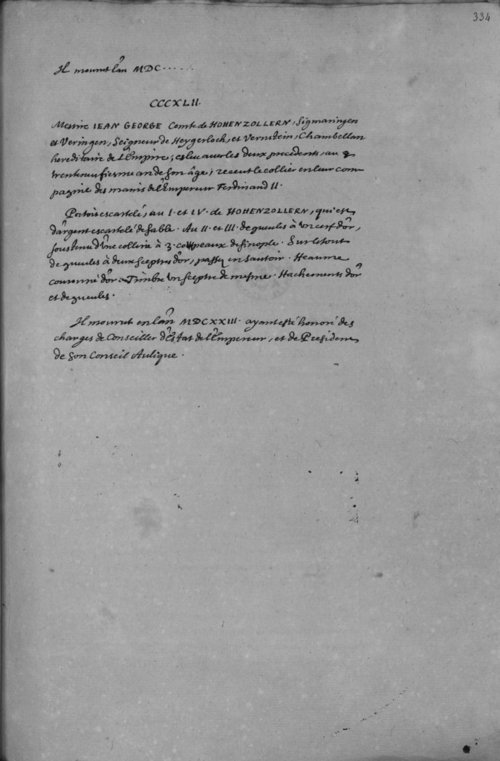 334
Il mourut l'an MDC......
CCCXLII.
Messire IEAN GEORGE Comte de HOHENZOLLERN, Sigmaringen
et Veringen, Seigneur de Heygerloch, et Vernstein, Chambellan
hereditaire de l'Empire; esleu avec les deux precedents, au
trentneufiesme an de son âge; receut le collier en leur com-
pagnie des mains de l'Empereur Ferdinand II.
Portoit escartelé, au I. et IV. de HOHENZOLLERN, qui est
d'argent escartelé de sable. Au II. et III. de gueules à un cerf d'or,
soustenu d'une colline à 3. coupeaux de sinople. Sur le tout
de gueules à deux sceptres d'or, passez en sautoir. Heaume
couronné d'or. Timbre un sceptre de mesme. Hachements d'or
et de gueules.
Il mourut en l'an MDCXXIII. ayant esté honoré des
charges de Conseiller d'Estat de l'Empereur, et de President
de son Conseil Aulique.